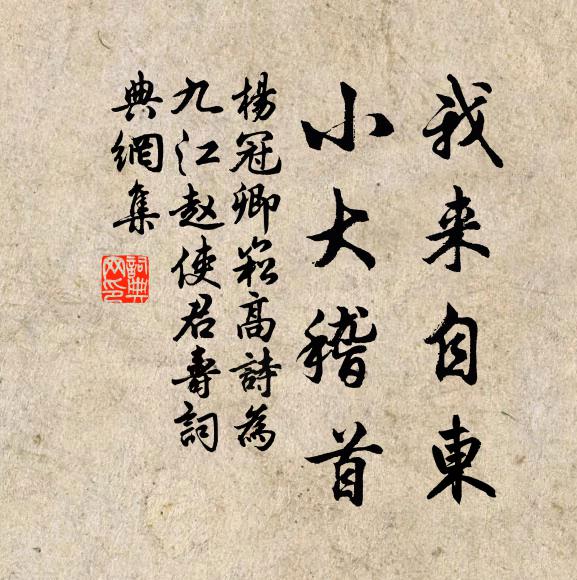 我来自東
小大稽首
楊冠卿崧高詩為
九江赵使君壽詞
典網集
詞典網印